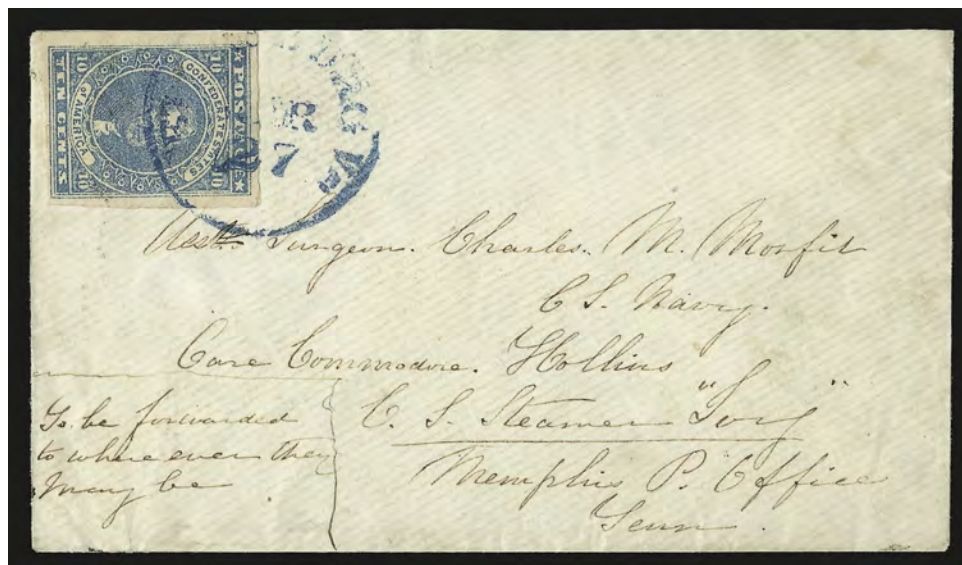 ★ POSTAGE ★
CONFEDERATE STATES
of AMERICA
TEN CENTS
10 10
10 10
Asst. Surgeon. Charles. M. Morfit
C S. Navy.
Care Commodore. Hollins
C. S. Steamer "Ivy"
Memphis P. Office
Tenn.
To be forwarded
to where ever they
may be